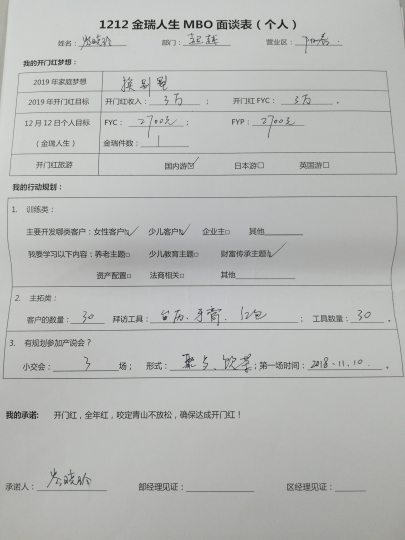 1212 金瑞人生 MBO 面谈表（个人）
姓名： 岑晓玲 部门： 营业区：
我的开门红梦想：
2019 年家庭梦想 换别墅
2019 年开门红目标 开门红收入： 3万 ； 开门红 FYC： 3万 。
12 月 12 日个人目标 FYC： 2700元 ； FYP： 2700元
（金瑞人生） 金瑞件数： 1
开门红旅游 国内游☑ 日本游□ 英国游□
我的行动规划：
1. 训练类：
主要开发哪类客户：女性客户☑ 少儿客户☑ 企业主□ 其他
我要学习以下内容：养老主题□ 少儿教育主题□ 财富传承主题☑
资产配置□ 法商相关□ 其他
2. 主拓类：
客户的数量： 30 拜访工具： 台历、牙膏、红包 ； 工具数量： 30 。
3. 有规划参加产说会？
小交会： 3 场； 形式： 聚点、饮茶 ；第一场时间： 2018.11.10 。
我的承诺： 开门红，全年红，咬定青山不放松，确保达成开门红！
承诺人： 岑晓玲 部经理见证： 区经理见证：